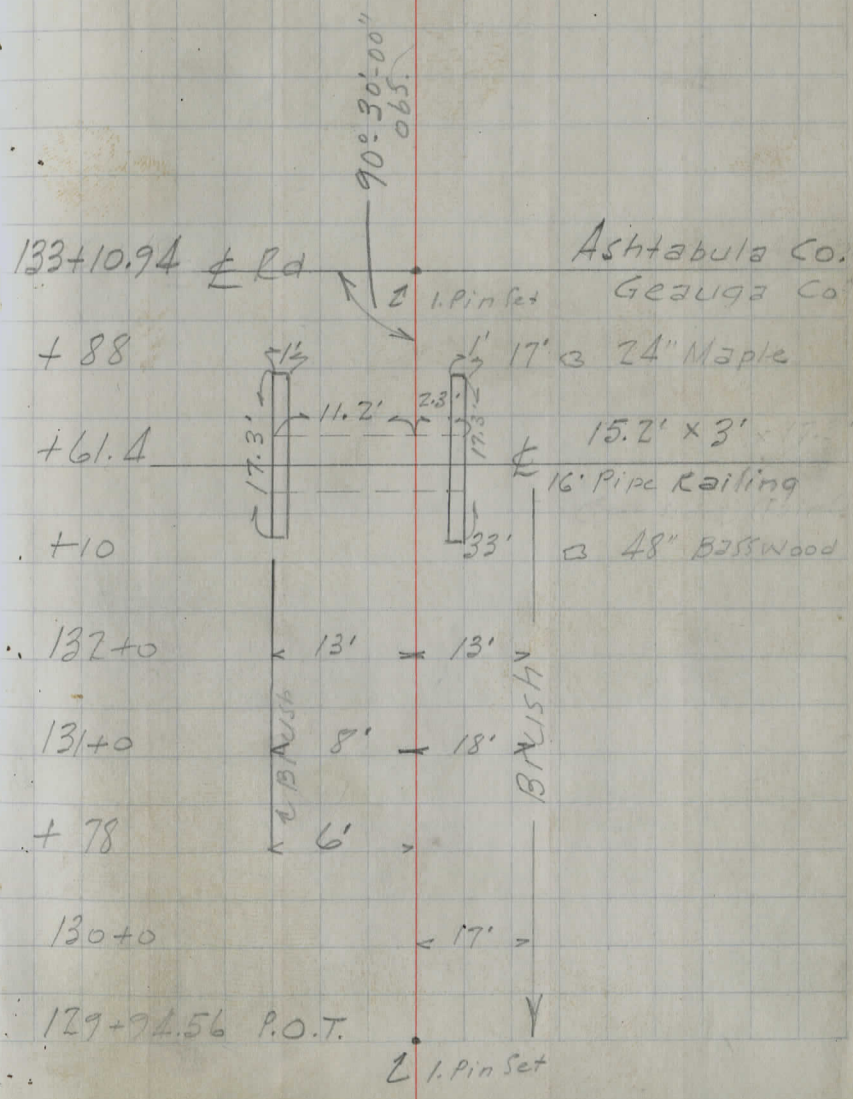 90°-30'-00"
obs.
133+10.94 ℄ Rd
Ashtabula Co.
1. Pin Set
Geauga Co
+ 88
1'
1'
17'
24" Maple
11.2'
2.3'
17.3'
17.3'
+61.4
℄
15.2' x 3'
16' Pipe Railing
+10
33'
48" Basswood
132+0
13'
13'
131+0
8'
18'
Brush
Brush
+ 78
6'
130+0
17'
129+94.56 P.O.T.
1. Pin Set